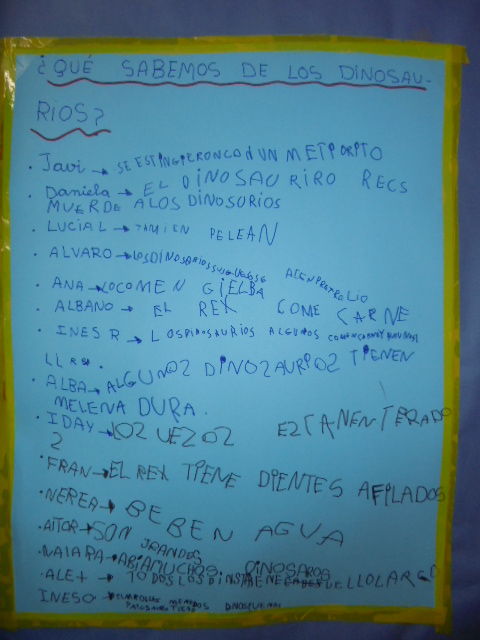 ¿QUÉ SABEMOS DE LOS DINOSAU-
RIOS?
. Javi → SE ESTINGIERONCON UN METEORITO
. Daniela → EL DINOSAURIRO RECS
MUERDE A LOS DINOSORIOS
. LUCIA L → TAMIEN PELEAN
. ALVARO → LOSDINOSORIOS SUS HUESOS ACEN PRETROLIO
. ANA → LOCOMEN GIELBA
. ALBANO → EL REX COME CARNE
. INES R → LOSPIDOSAURIOS ALGUNOS
. ALBA → ALGUNOZ DINOZAURIOZ TIENEN
MELENA DURA.
. IDAY → LOZ UEZOZ EZTANENTERRADO
Z
. FRAN → EL REX TIENE DIENTES AFILADOS
. NEREA → BEBEN AGUA
. AITOR → SON GRANDOS
. NAIARA → ABIAMUCHOS DINOSAROS
. ALEX → TODOS LOS DINS TIENEN CUELLOLARGO
INES O →